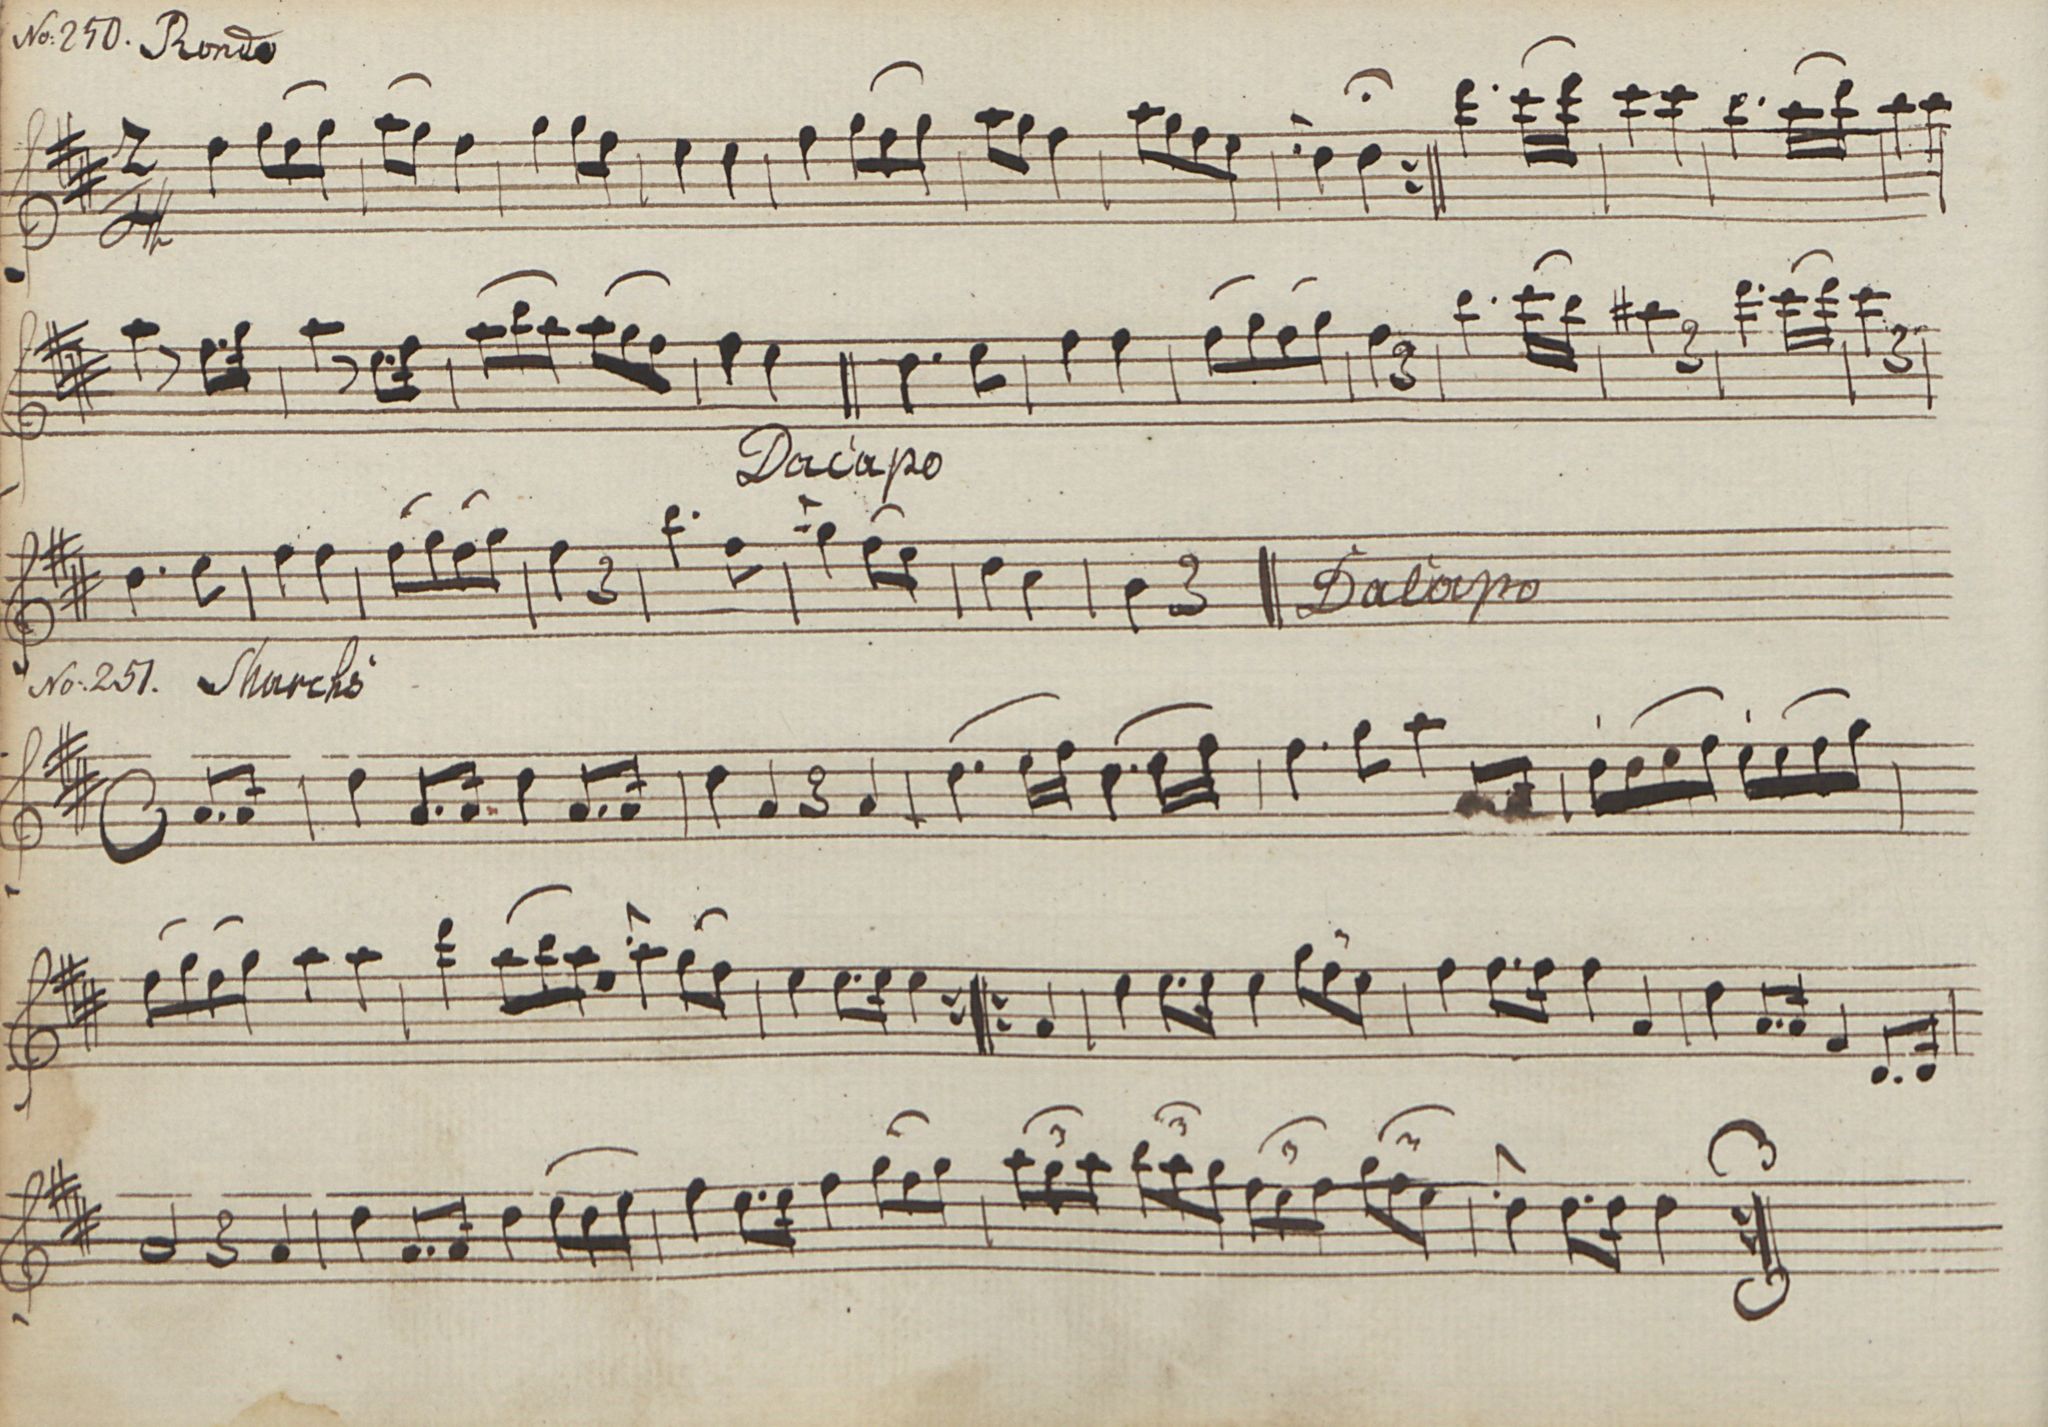 No: 250. Rondo
2
Dacapo
Dacapo
No: 251. Marche
3
3 3 3 3